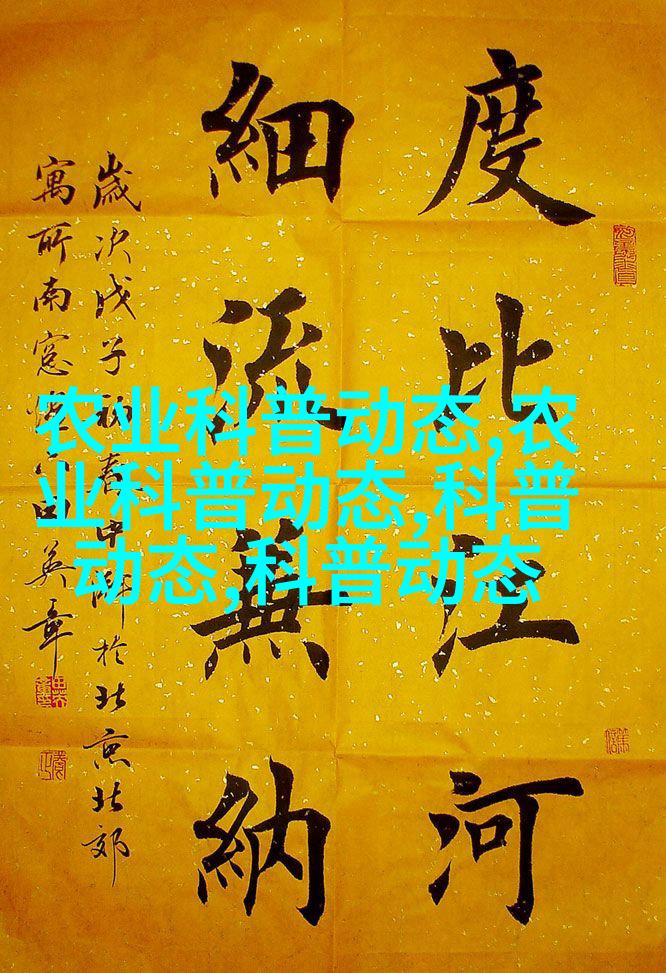 度比江河
細流兼納
歲次戊子初春中於北京北郊
寓所南窓田英章
农业科普动态,农
业科普动态,科普
动态,科普动态